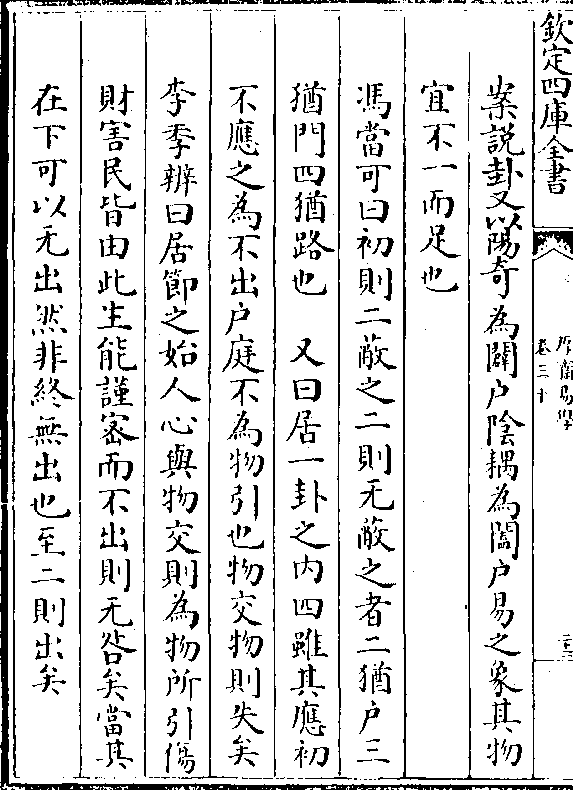 欽定四庫全書
厚齋易學
卷三十
案說卦又以陽奇為闢户陰耦為闔户易之象其物
宜不一而足也
馮當可曰初則二蔽之二則无蔽之者二猶户三
猶門四猶路也 又曰居一卦之内四雖其應初
不應之為不出户庭不為物引也物交物則失矣
李季辨曰居節之始人心與物交則為物所引傷
財害民皆由此生能謹宻而不出則无咎矣當其
在下可以无出然非終無出也至二則出矣